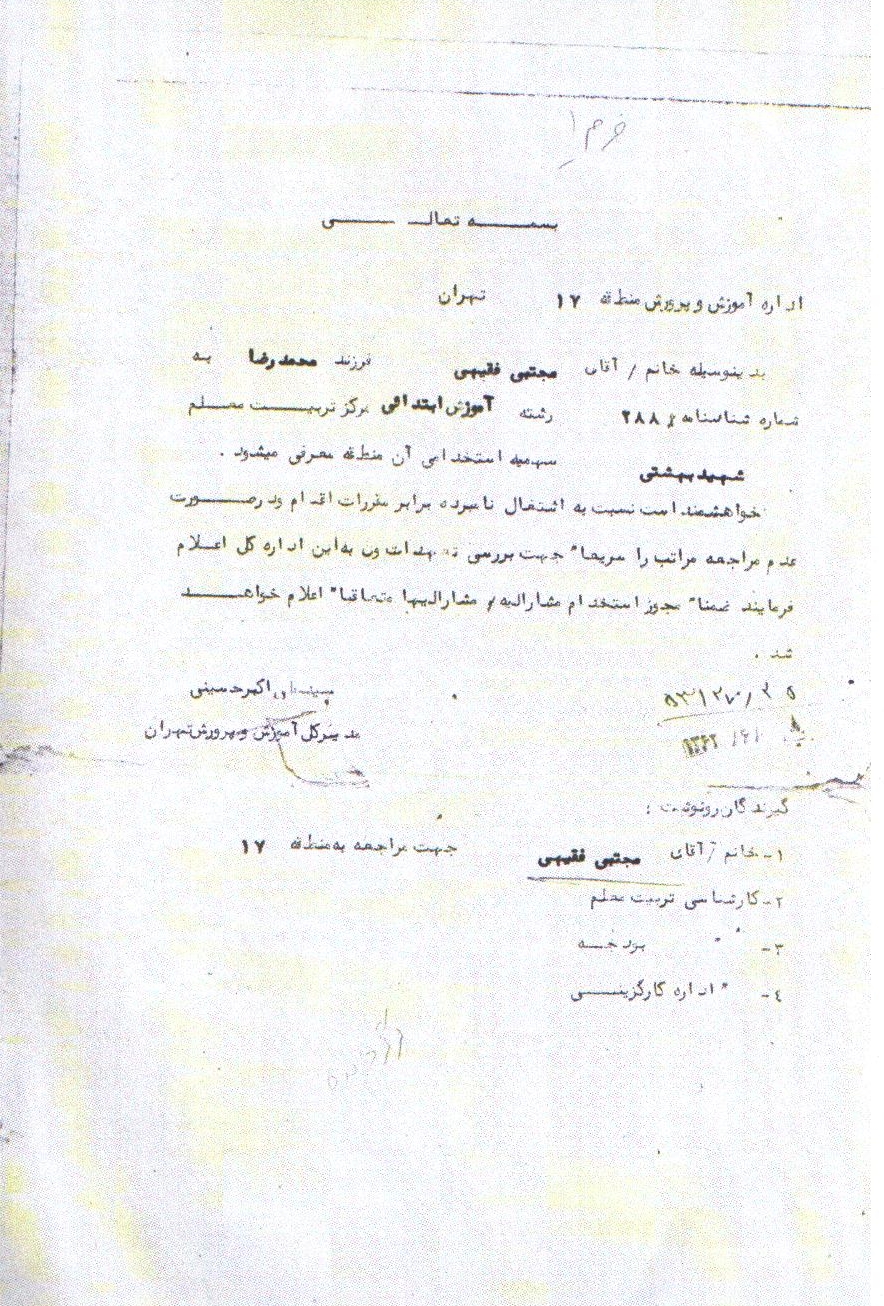 فرم ۱
بسمه تعالی
اداره آموزش و پرورش منطقه ۱۷ تهران
بدینوسیله خانم / آقای مجتبی فقیهی فرزند محمدرضا به
شماره شناسنامه ۲۸۸ رشته آموزش ابتدائی مرکز تربیت معلم
شهید بهشتی سهمیه استخدامی آن منطقه معرفی میشود .
خواهشمند است نسبت به اشتغال نامبرده برابر مقررات اقدام و در صورت
عدم مراجعه مراتب را سریعا" جهت بررسی تعهدات ون به این اداره کل اعلام
فرمایند ضمنا" مجوز استخدام مشارالیه / مشارالیها متعاقبا" اعلام خواهد
شد .
اکبر حسینی
مدیرکل آموزش و پرورش تهران
گیرندگان رونوشت :
۱- خانم / آقای مجتبی فقیهی جهت مراجعه به منطقه ۱۷
۲- کارشناسی تربیت معلم
۳- " بودجه
۴- " اداره کارگزینی